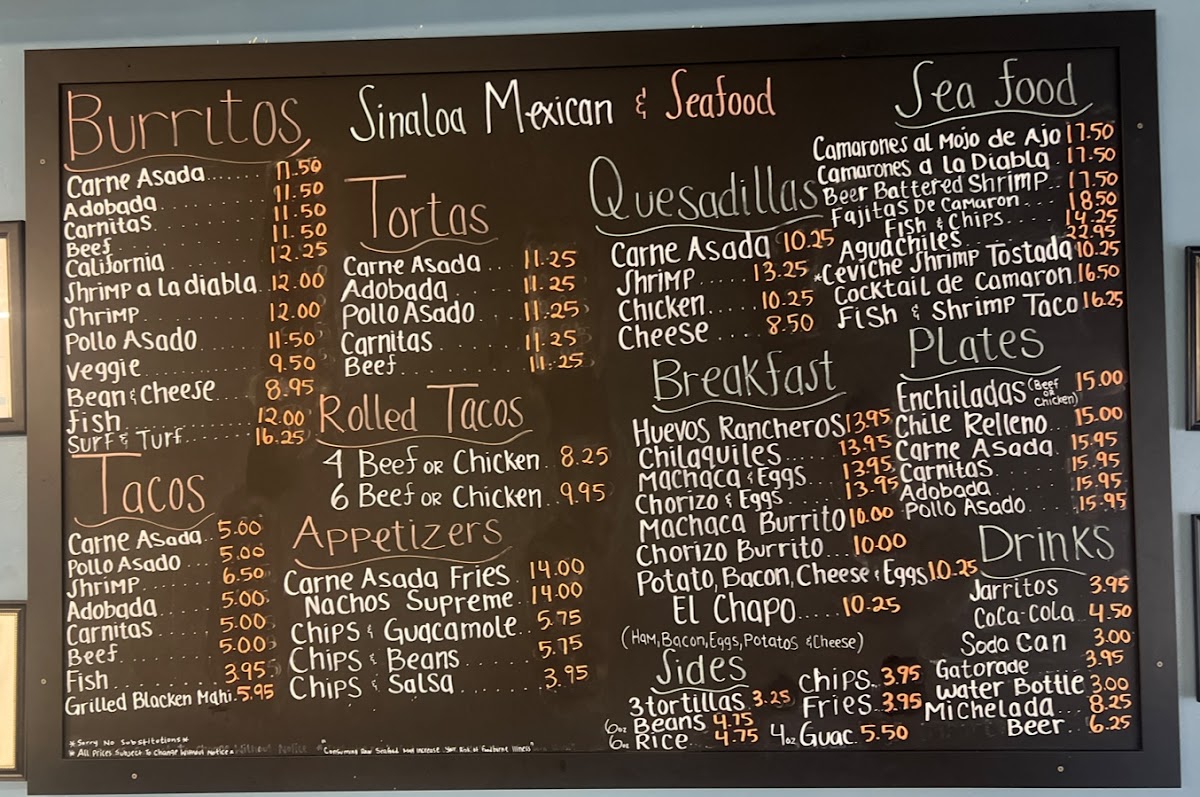 Sinaloa Mexican & Seafood
Burritos
Carne Asada....... 11.50
Adobada.............. 11.50
Carnitas.............. 11.50
Beef.................... 11.50
California............ 12.25
Shrimp a la diabla.. 12.00
Shrimp................ 12.00
Pollo Asado......... 11.50
Veggie................. 9.50
Bean & Cheese...... 8.95
Fish..................... 12.00
Surf & Turf........... 16.25
Tacos
Carne Asada.. 5.00
Pollo Asado... 5.00
Shrimp........... 6.50
Adobada......... 5.00
Carnitas......... 5.00
Beef............... 5.00
Fish................ 3.95
Grilled Blacken Mahi. 5.95
*Sorry No Substitutions*
* All Prices Subject To Change Without Notice*
Tortas
Carne Asada... 11.25
Adobada.......... 11.25
Pollo Asado..... 11.25
Carnitas.......... 11.25
Beef................ 11.25
Rolled Tacos
4 Beef or Chicken.. 8.25
6 Beef or Chicken.. 9.95
Appetizers
Carne Asada Fries.. 14.00
Nachos Supreme... 14.00
Chips & Guacamole.. 5.75
Chips & Beans........ 5.75
Chips & Salsa......... 3.95
"Consuming Raw Seafood May Increase Your Risk of Foodborne Illness"
Quesadillas
Carne Asada 10.25
Shrimp....... 13.25
Chicken...... 10.25
Cheese....... 8.50
Breakfast
Huevos Rancheros 13.95
Chilaquiles........ 13.95
Machaca & Eggs... 13.95
Chorizo & Eggs.... 13.95
Machaca Burrito 10.00
Chorizo Burrito... 10.00
Potato, Bacon, Cheese & Eggs 10.25
El Chapo..... 10.25
(Ham, Bacon, Eggs, Potatoes & Cheese)
Sides
3 tortillas 3.25
6oz Beans 4.75
6oz Rice 4.75
Chips. 3.95
Fries. 3.95
4oz Guac. 5.50
Sea food
Camarones al Mojo de Ajo 17.50
Camarones a la Diabla.. 17.50
Beer Battered Shrimp.. 17.50
Fajitas De Camaron.... 18.50
Fish & Chips..... 14.25
Aguachiles.......... 22.95
*Ceviche Shrimp Tostada 10.25
Cocktail de Camaron. 16.50
Fish & Shrimp Taco 16.25
Plates
Enchiladas (Beef or Chicken) 15.00
Chile Relleno... 15.00
Carne Asada... 15.95
Carnitas.......... 15.95
Adobada......... 15.95
Pollo Asado..... 15.95
Drinks
Jarritos 3.95
Coca-Cola 4.50
Soda Can 3.00
Gatorade 3.95
Water Bottle 3.00
Michelada.. 8.25
Beer.. 6.25